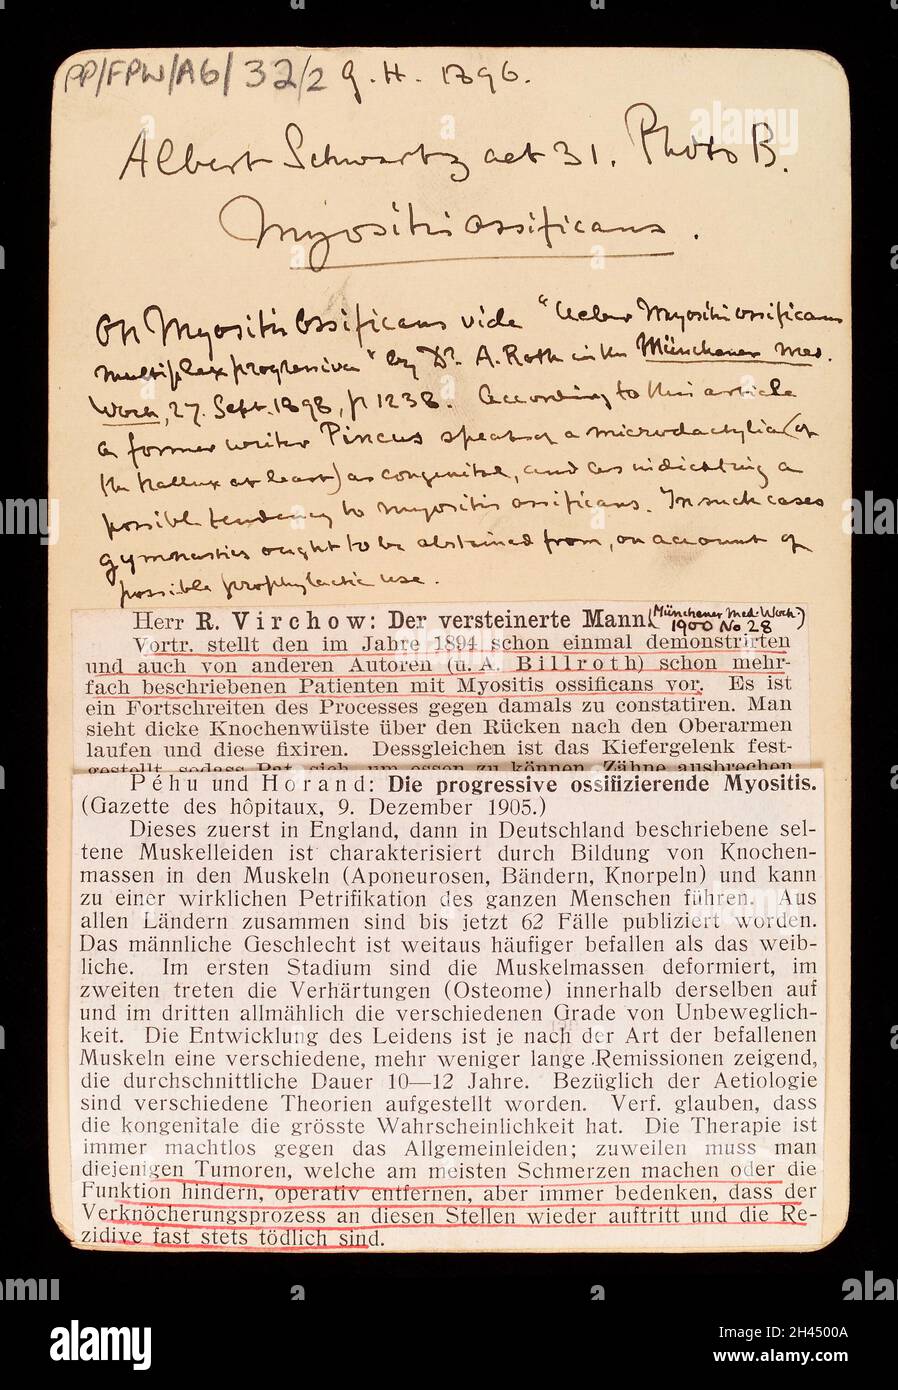 PP/FPW/A6/32/2 G.H. 1896.
Albert Schwartz aet 31. Photo B.
Myositis ossificans.
On Myositis Ossificans vide "Ueber Myositis ossificans
multiplex progressiva" by Dr. A. Roth in the Münchener Med.
Woch, 27. Sept. 1898, p 1238. According to this article
a former writer Pincus speaks of a microdactylia (of
the hallux at least) as congenital, and as indicating a
possible tendency to myositis ossificans. In such cases
gymnastics ought to be abstained from, on account of
possible prophylactic use.
Herr R. Virchow: Der versteinerte Mann. (Münchener Med. Woch.
1900 No 28)
Vortr. stellt den im Jahre 1894 schon einmal demonstrirten
und auch von anderen Autoren (u. A. Billroth) schon mehr-
fach beschriebenen Patienten mit Myositis ossificans vor. Es ist
ein Fortschreiten des Processes gegen damals zu constatiren. Man
sieht dicke Knochenwülste über den Rücken nach den Oberarmen
laufen und diese fixiren. Dessgleichen ist das Kiefergelenk fest-
gestellt, sodass Pat. sich, um essen zu können, Zähne ausbrechen
Péhu und Horand: Die progressive ossifizierende Myositis.
(Gazette des hôpitaux, 9. Dezember 1905.)
Dieses zuerst in England, dann in Deutschland beschriebene sel-
tene Muskelleiden ist charakterisiert durch Bildung von Knochen-
massen in den Muskeln (Aponeurosen, Bändern, Knorpeln) und kann
zu einer wirklichen Petrifikation des ganzen Menschen führen. Aus
allen Ländern zusammen sind bis jetzt 62 Fälle publiziert worden.
Das männliche Geschlecht ist weitaus häufiger befallen als das weib-
liche. Im ersten Stadium sind die Muskelmassen deformiert, im
zweiten treten die Verhärtungen (Osteome) innerhalb derselben auf
und im dritten allmählich die verschiedenen Grade von Unbeweglich-
keit. Die Entwicklung des Leidens ist je nach der Art der befallenen
Muskeln eine verschiedene, mehr weniger lange Remissionen zeigend,
die durchschnittliche Dauer 10—12 Jahre. Bezüglich der Aetiologie
sind verschiedene Theorien aufgestellt worden. Verf. glauben, dass
die kongenitale die grösste Wahrscheinlichkeit hat. Die Therapie ist
immer machtlos gegen das Allgemeinleiden; zuweilen muss man
diejenigen Tumoren, welche am meisten Schmerzen machen oder die
Funktion hindern, operativ entfernen, aber immer bedenken, dass der
Verknöcherungsprozess an diesen Stellen wieder auftritt und die Re-
zidive fast stets tödlich sind.
alamy
Image ID: 2H4500A
www.alamy.com